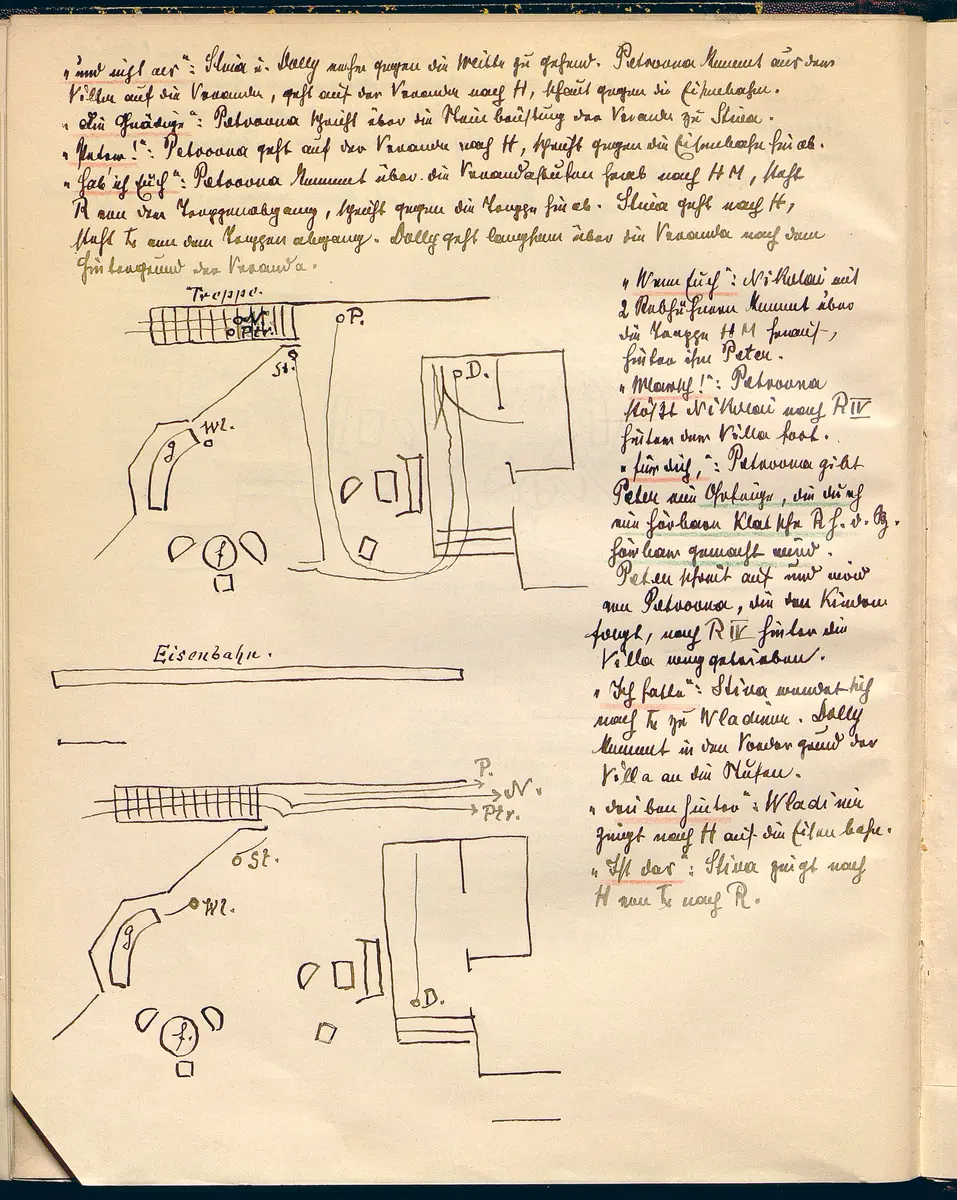 „und nicht aus“: Stina u. Dolly gegen die Mitte zu gehend. Petrovna kommt aus der
Villa auf die Veranda, geht auf der Veranda nach H, schaut gegen die Eisenbahn.
„Die Gnädige“: Petrovna spricht über die Steinbrüstung der Veranda zu Stina.
„Peter!“: Petrovna geht auf der Veranda nach H, spricht gegen die Eisenbahn hinab.
„Hab' ich Euch“: Petrovna kommt über die Verandastufen herab nach H M, steht
R von dem Treppenabgang, spricht gegen die Treppe hinab. Stina geht nach H,
steht L von dem Treppenabgang. Dolly geht langsam über die Veranda nach dem
Hintergrund der Veranda.
Treppe.
N.
Ptr.
P.
St.
D.
Wl.
g
f
„Wenn Euch“: Nikolai mit
2 Rebhühnern kommt über
die Treppe H M herauf,
hinter ihm Peter.
„Marsch!“: Petrovna
stößt Nikolai nach R IV
hinter der Villa fort.
„für dich,“: Petrovna gibt
Peter eine Ohrfeige, die durch
eine hörbare Klatsche R h. d. B.
hörbar gemacht wird.
Peter schreit auf und wird
von Petrovna, die den Kindern
folgt, nach R IV hinter die
Villa weggetrieben.
„Ich hatte“: Stina wendet sich
nach L zu Wladimir. Dolly
kommt in den Vordergrund der
Villa an die Stufen.
„drüben hinter“: Wladimir
zeigt nach H auf die Eisenbahn.
„Ist das“: Stina zeigt nach
H von L nach R.
Eisenbahn.
P.
N.
Ptr.
St.
Wl.
g
D.
f.